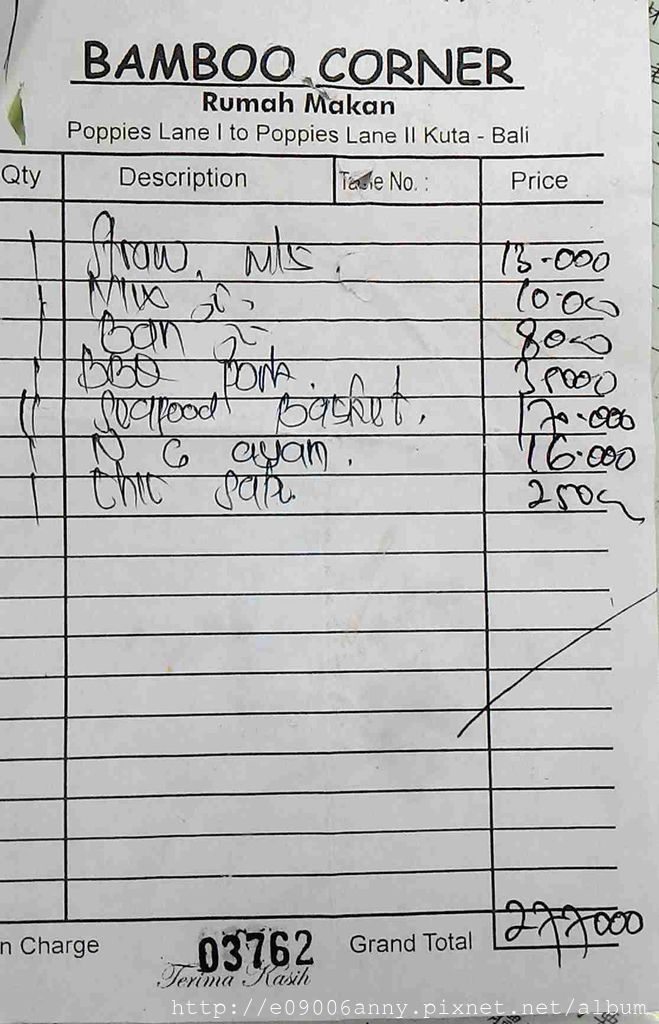 BAMBOO CORNER
Rumah Makan
Poppies Lane I to Poppies Lane II Kuta - Bali
Qty Description Table No. : Price
1 Straw. Mls. 13.000
1 Mix Jc 10.000
1 Ban Jc 8000
1 BBQ Pork. 35000
11 Seafood Basket. 170.000
1 N G ayam. 16.000
1 Chic sate. 25000
n Charge 03762 Grand Total 277000
Terima Kasih
http://e09006anny.pixnet.net/album